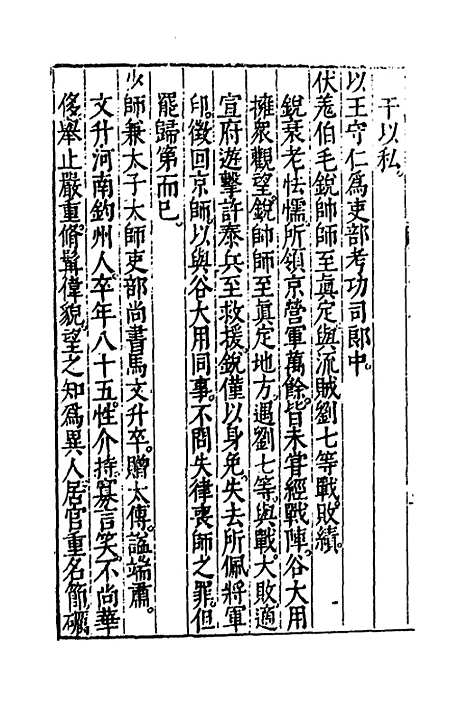 干以私。
以王守仁爲吏部考功司郞中。
伏羗伯毛銳帥師至眞定與流賊劉七等戰。敗績。
銳衰老怯懦所領京營軍萬餘。皆未甞經戰陣。谷大用
擁衆觀望。銳帥師至眞定地方。遇劉七等。與戰。大敗。適
宣府遊擊許泰兵至救援。銳僅以身免。失去所佩將軍
印。徵回京師。以與谷大用同事。不問失律喪師之罪。但
罷歸第而已。
少師兼太子太師吏部尚書馬文升卒。贈太傅。謚端肅。
文升河南鈞州人。卒年八十五。性介持。寡言笑。不尚華
侈。舉止嚴重。脩髯偉貌。望之知爲異人。居官重名節。礪